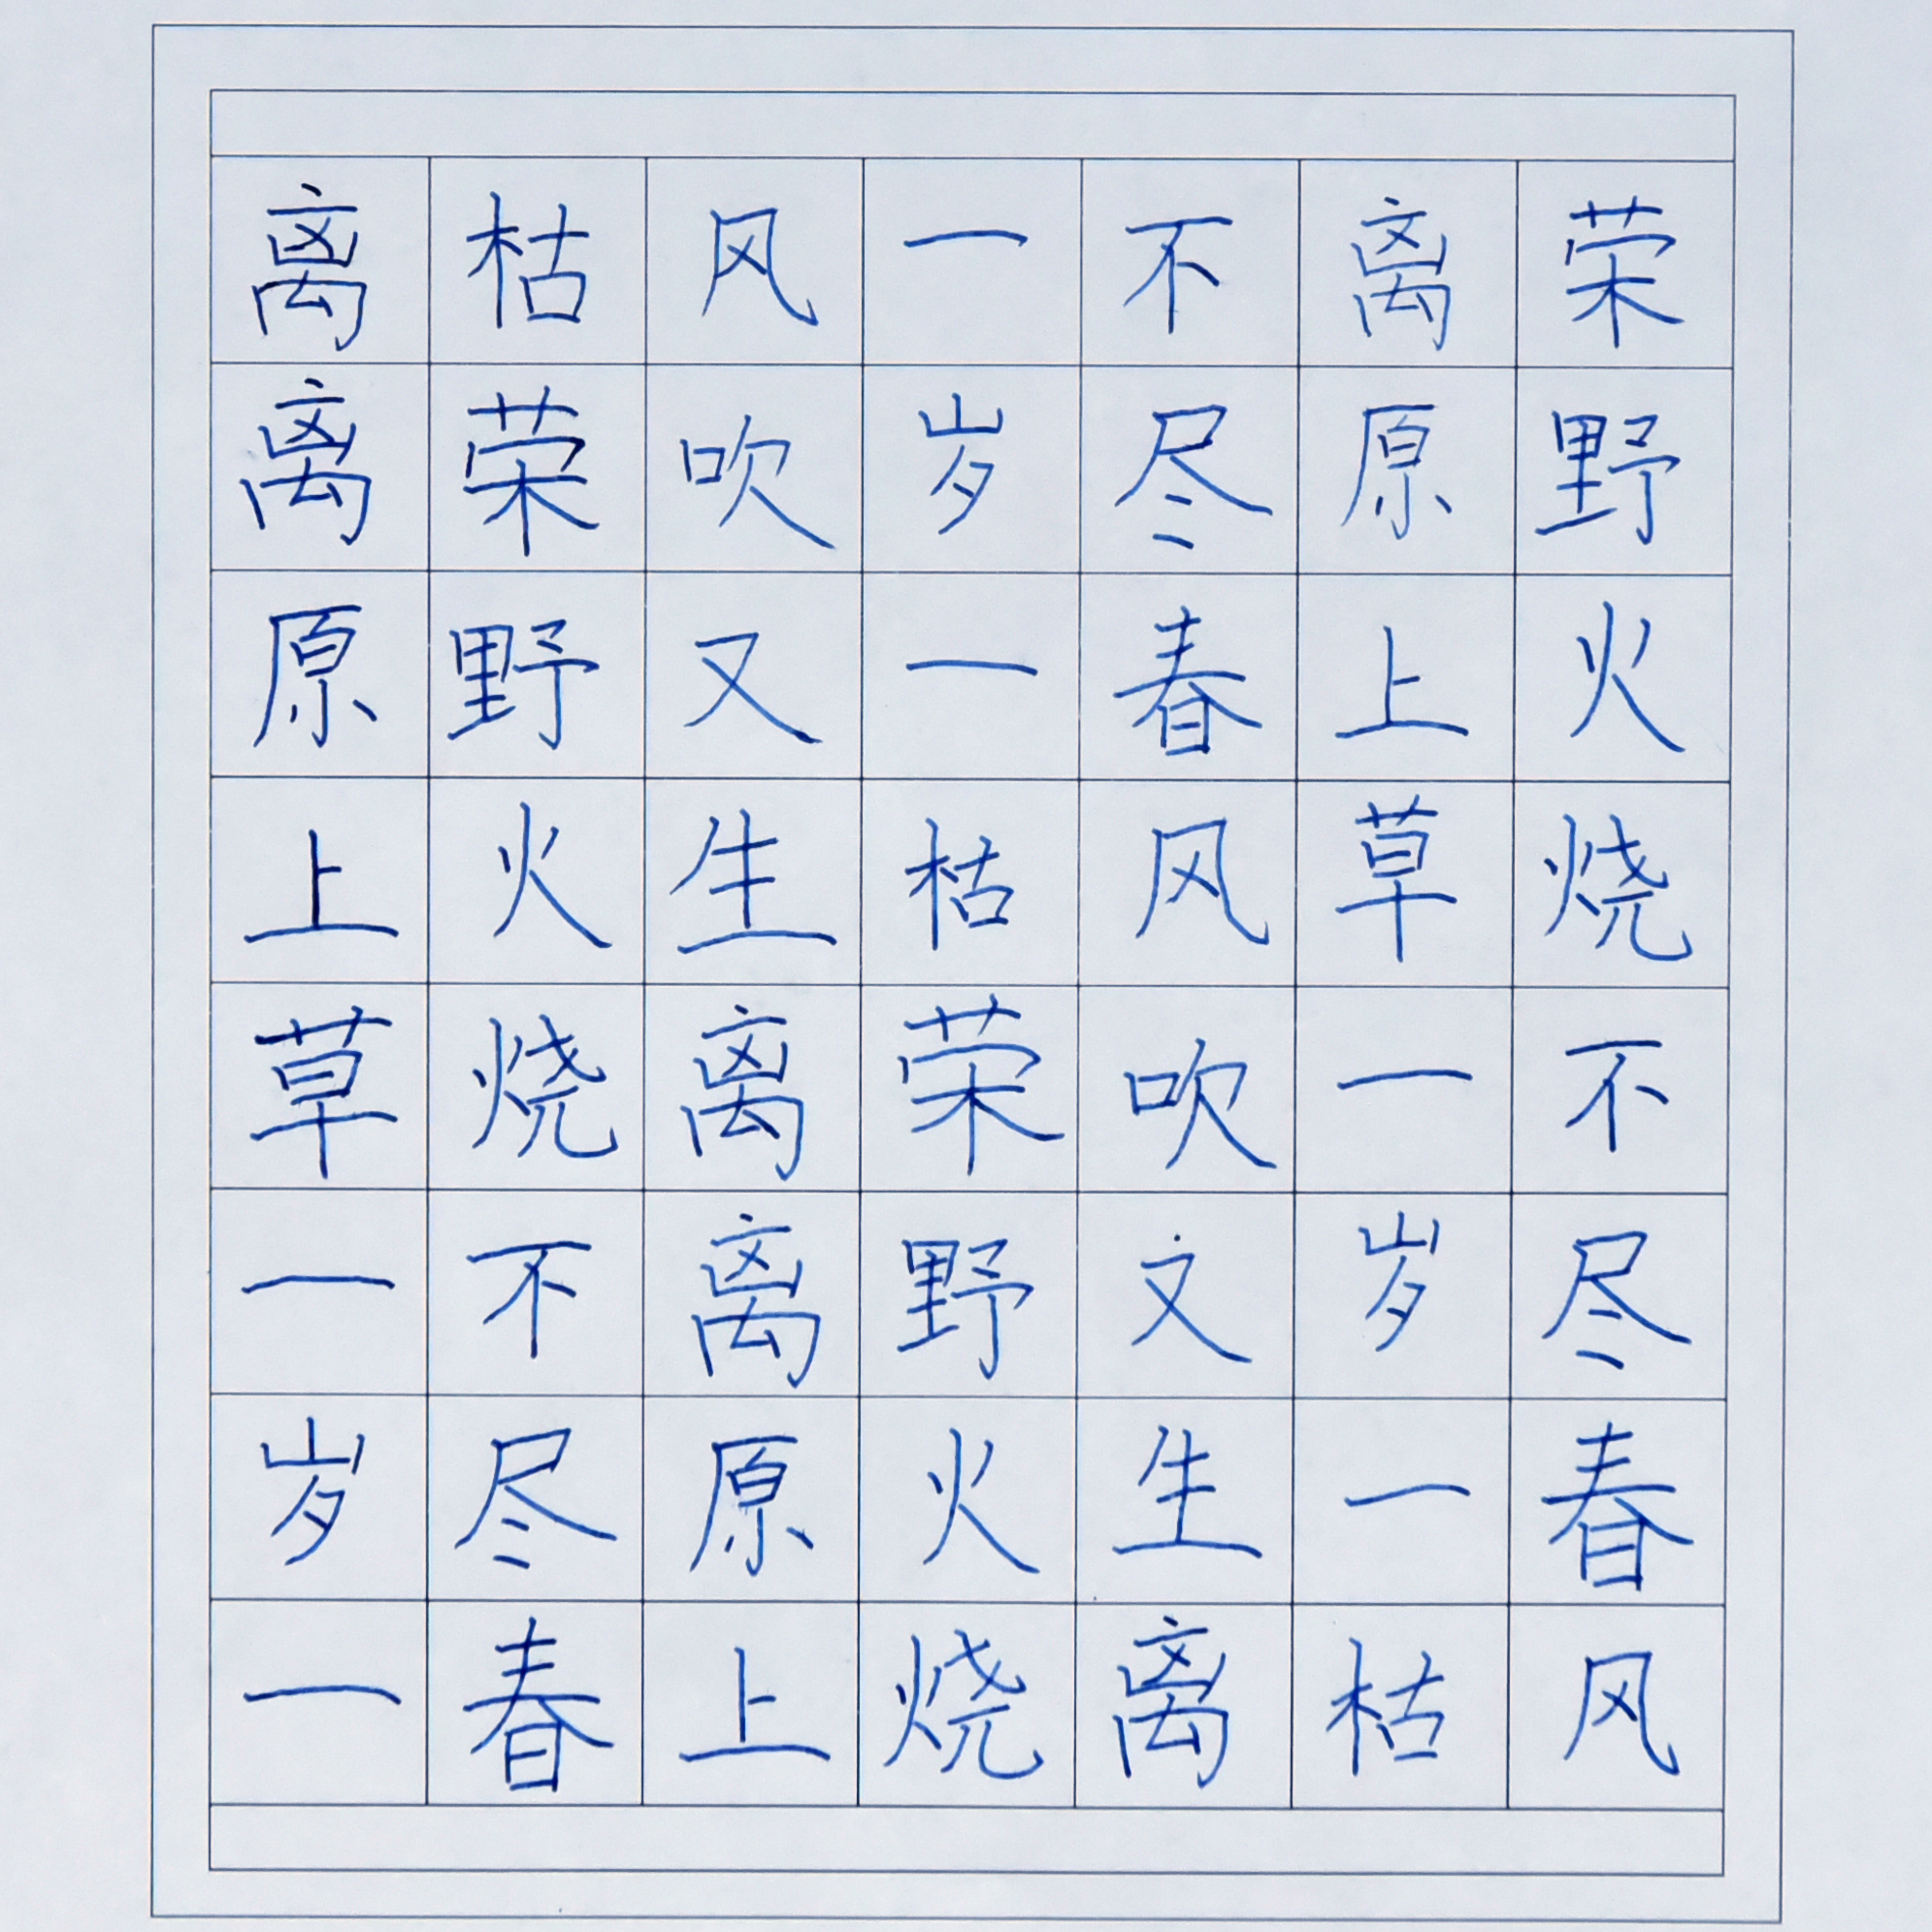 离离原上草一岁一
枯荣野火烧不尽春
风吹又生离离原上
一岁一枯荣野火烧
不尽春风吹又生离
离原上草一岁一枯
荣野火烧不尽春风